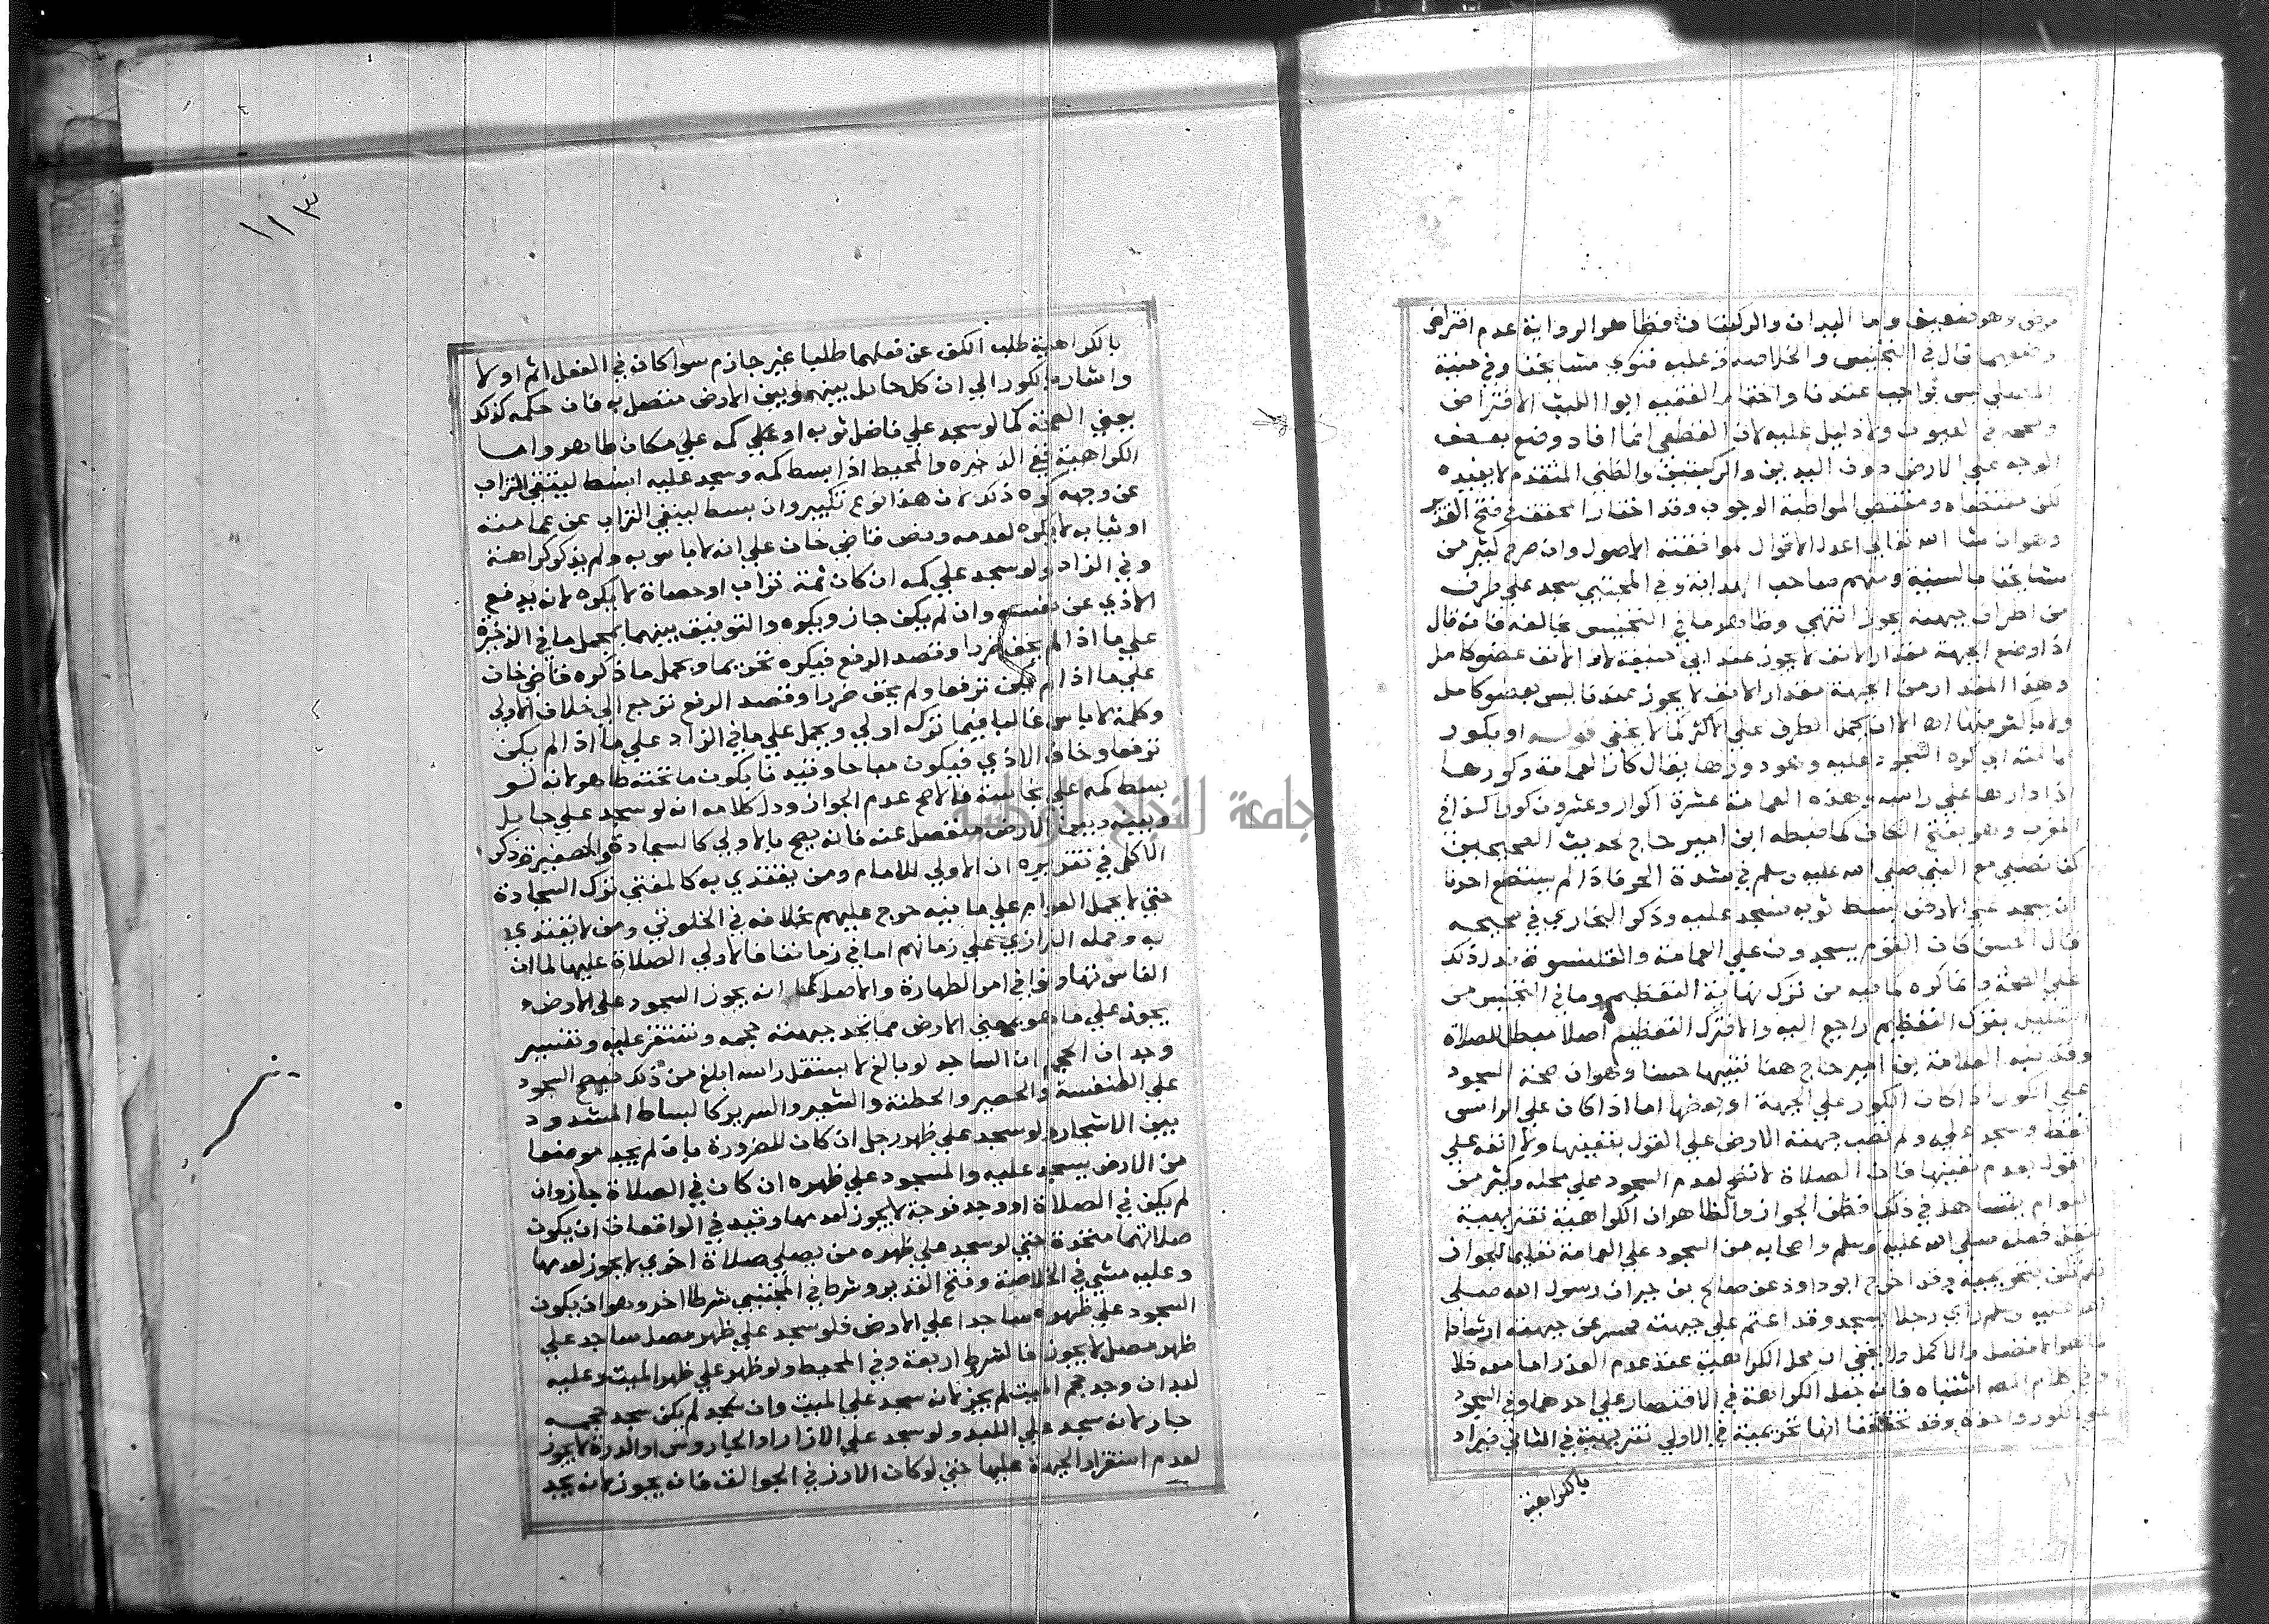 مرفق وهو ضعيف واما اليدان والركبتان فظاهر الرواية عدم افتراض
وضعهما قال في التجنيس والخلاصة وعليه فتوي مشايخنا وفي منية
المصلي ليس بواجب عندنا واختار الفقيه ابو الليث الافتراض
وصححه في العيون ولا دليل عليه لان القطعي انما افاد وضع بعض
الوجه علي الارض دون اليدين والركبتين والظني المتقدم لا يفيده
لكن مقتضاه ومقتضي المواظبة الوجوب وقد اختاره المحقق في فتح القدير
وهو ان شا الله تعالي اعدل الاقوال لموافقته الاصول وان صرح كثير من
مشايخنا بالسنية ومنهم صاحب الهداية وفي المجتبي سجد علي طرف
من اطراف جبهته يجوز انتهي وظاهر ما في التجنيس يخالفه فانه قال
اذا وضع الجبهة مقدار الانف لا يجوز عند ابي حنيفة لان الانف عضو كامل
وهذا المقدار من الجبهة مقدار الانف لا يجوز عندنا ليس بعضو كامل
ولا باكثر منها اه الا ان يحمل الطرف علي الاكثر كما لا يخفي قوله او بكور
عمامته اي كره السجود عليه وهو دورها يقال كار العمامة وكورها
اذا دارها علي راسه وهذه العمامة عشرة اكوار وعشرون كورا كذا في
المغرب وهو بفتح الكاف كما ضبطه ابن امير حاج لحديث الصحيحين
كنا نصلي مع النبي صلي الله عليه وسلم في شدة الحر فاذا لم يستطع احدنا
ان يسجد علي الارض بسط ثوبه فسجد عليه وذكر البخاري في صحيحه
قال الحسن كان القوم يسجدون علي العمامة والقلنسوة فدل ذلك
علي الصحة وانما كره لما فيه من ترك نهاية التعظيم وما في التجنيس من
التعليل بترك التعظيم راجع اليه والا فترك التعظيم اصلا مبطل للصلاة
وقد نبه العلامة بن امير حاج هنا تنبيها حسنا وهو ان صحة السجود
علي الكور اذا كان الكور علي الجبهة او بعضها اما اذا كان علي الراس
فقط وسجد عليه ولم تصب جبهته الارض علي القول بتعينها ولا انفه علي
القول بعدم تعينها فان الصلاة لا تصح لعدم السجود علي محله وكثير من
العوام يتساهل في ذلك فظن الجواز والظاهر ان الكراهية تنزيهية
لنقل فعله صلي الله عليه وسلم واصحابه من السجود علي العمامة تعليما للجواز
فلم تكن تحريمية وقد اخرج ابو داود عن صالح بن حيوان رسول الله صلي
الله عليه وسلم راي رجلا يسجد وقد اعتم علي جبهته فحسر عن جبهته ارشادا
لما هو الافضل والاكمل ولا يخفي ان محل الكراهية عند عدم العذر اما معه فلا
وفي كلام المص اشتباه فانه جعل الكراهة في الاقتصار علي احدهما وفي السجود
علي الكور واحدة وقد تحققنا انها تحريمية في الاولي تنزيهية في الثاني فيراد
بالكراهية
١١٣
بالكراهية طلب الكف عن فعلهما طلبا غير جازم سوا كان في الفعل اثم او لا
واشار بالكور الي ان كل حايل بينه وبين الارض متصل به فان حكمه كذلك
يعني الصحة كما لو سجد علي فاضل ثوبه او علي كمه علي مكان طاهر واما
الكراهية ففي الذخيره والمحيط اذا بسط كمه وسجد عليه ان بسط ليتقي التراب
عن وجهه كره ذلك لان هذا نوع تكبير وان بسط ليتقي التراب عن عمامته
او ثيابه لا يكره لعدمه ونص قاضي خان علي انه لا باس به ولم يذكر كراهة
وفي الزاد ولو سجد علي كمه ان كان ثمة تراب او حصاة لا يكره لانه يدفع
الاذي عن نفسه وان لم يكن جاز ويكره والتوفيق بينهما بحمل ما في الذخيرة
علي ما اذا لم يخف ضررا وقصد الرفع فيكره تحريما ويحمل ما ذكره قاضي خان
علي ما اذا لم يكن ترفعا ولم يخف ضررا وقصد الرفع ترجع الي خلاف الاولي
وكلمة لا باس غالبا فيما تركه اولي ويحمل علي ما في الزاد علي ما اذا لم يكن
ترفعا وخاف الاذي فيكون مباحا وقيد نا بكون ما تحته طاهر لانه لو
بسط كمه علي نجاسة فالاصح عدم الجواز ودل كلامه انه لو سجد علي حايل
وبينه وبين الارض منفصل عنه فانه يصح بالاولي كالسجادة والحصير وذكر
الاكمل في تقريره ان الاولي للامام ومن يقتدي به كالمفتي ترك السجادة
حتي لا يحمل العوام علي ما فيه حرج عليهم بخلافه في الخلوتي ومن لا يقتدي
به وحمله البزازي علي زمانهم اما في زماننا فالاولي الصلاة عليها لما ان
الناس تهاونوا في امر الطهارة والاصل كما انه يجوز السجود علي الارض
يجوز علي ما هو بمعني الارض مما تجد جبهته حجمه وتستقر عليه وتفسير
وجدان الحجم ان الساجد لو بالغ لا يستفل راسه ابلغ من ذلك فيصح السجود
علي الطنفسة والحصير والحطنة والشعير والسرير كالبساط المشدود
بين الاشجار ولو سجد علي ظهر رجل ان كان للضرورة بان لم يجد موضعا
من الارض يسجد عليه والمسجود علي ظهره ان كان في الصلاة جاز وان
لم يكن في الصلاة او وجد فرجة لا يجوز لعدمها وقيد في الواقعات ان يكون
صلاتهما متحدة حتي لو سجد علي ظهره من يصلي صلاة اخري لا يجوز لعدمها
وعليه مشي في الخلاصة وفتح القدير وشرط في المجتبي شرطا اخر وهو ان يكون
السجود علي ظهره ساجدا علي الارض فلو سجد علي ظهر مصل ساجد علي
ظهر مصل لا يجوز فالشرط اربعة وفي المحيط ولو ظهر علي ظهر الميت وعليه
لبد ان وجد حجم الميت لم يجز لانه سجد علي الميت وان سجد لم يكن سجد حجمه
جاز لانه سجد علي اللبد ولو سجد علي الارز او الجاروس او الذرة لا يجوز
لعدم استقرار الجبهة عليها حتي لو كان الارز في الجوالق فانه يجوز لانه يجد
جامعة النجاح الوطنية